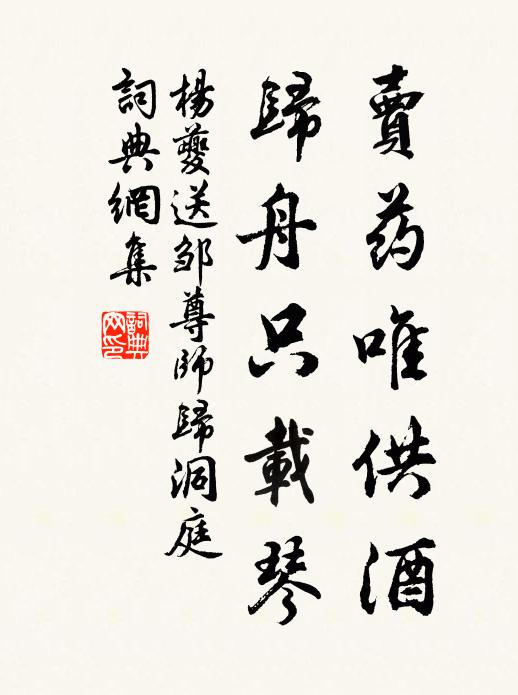 賣药唯供酒
歸舟只載琴
楊夔送邹尊師歸洞庭
詞典網集
詞典
网印